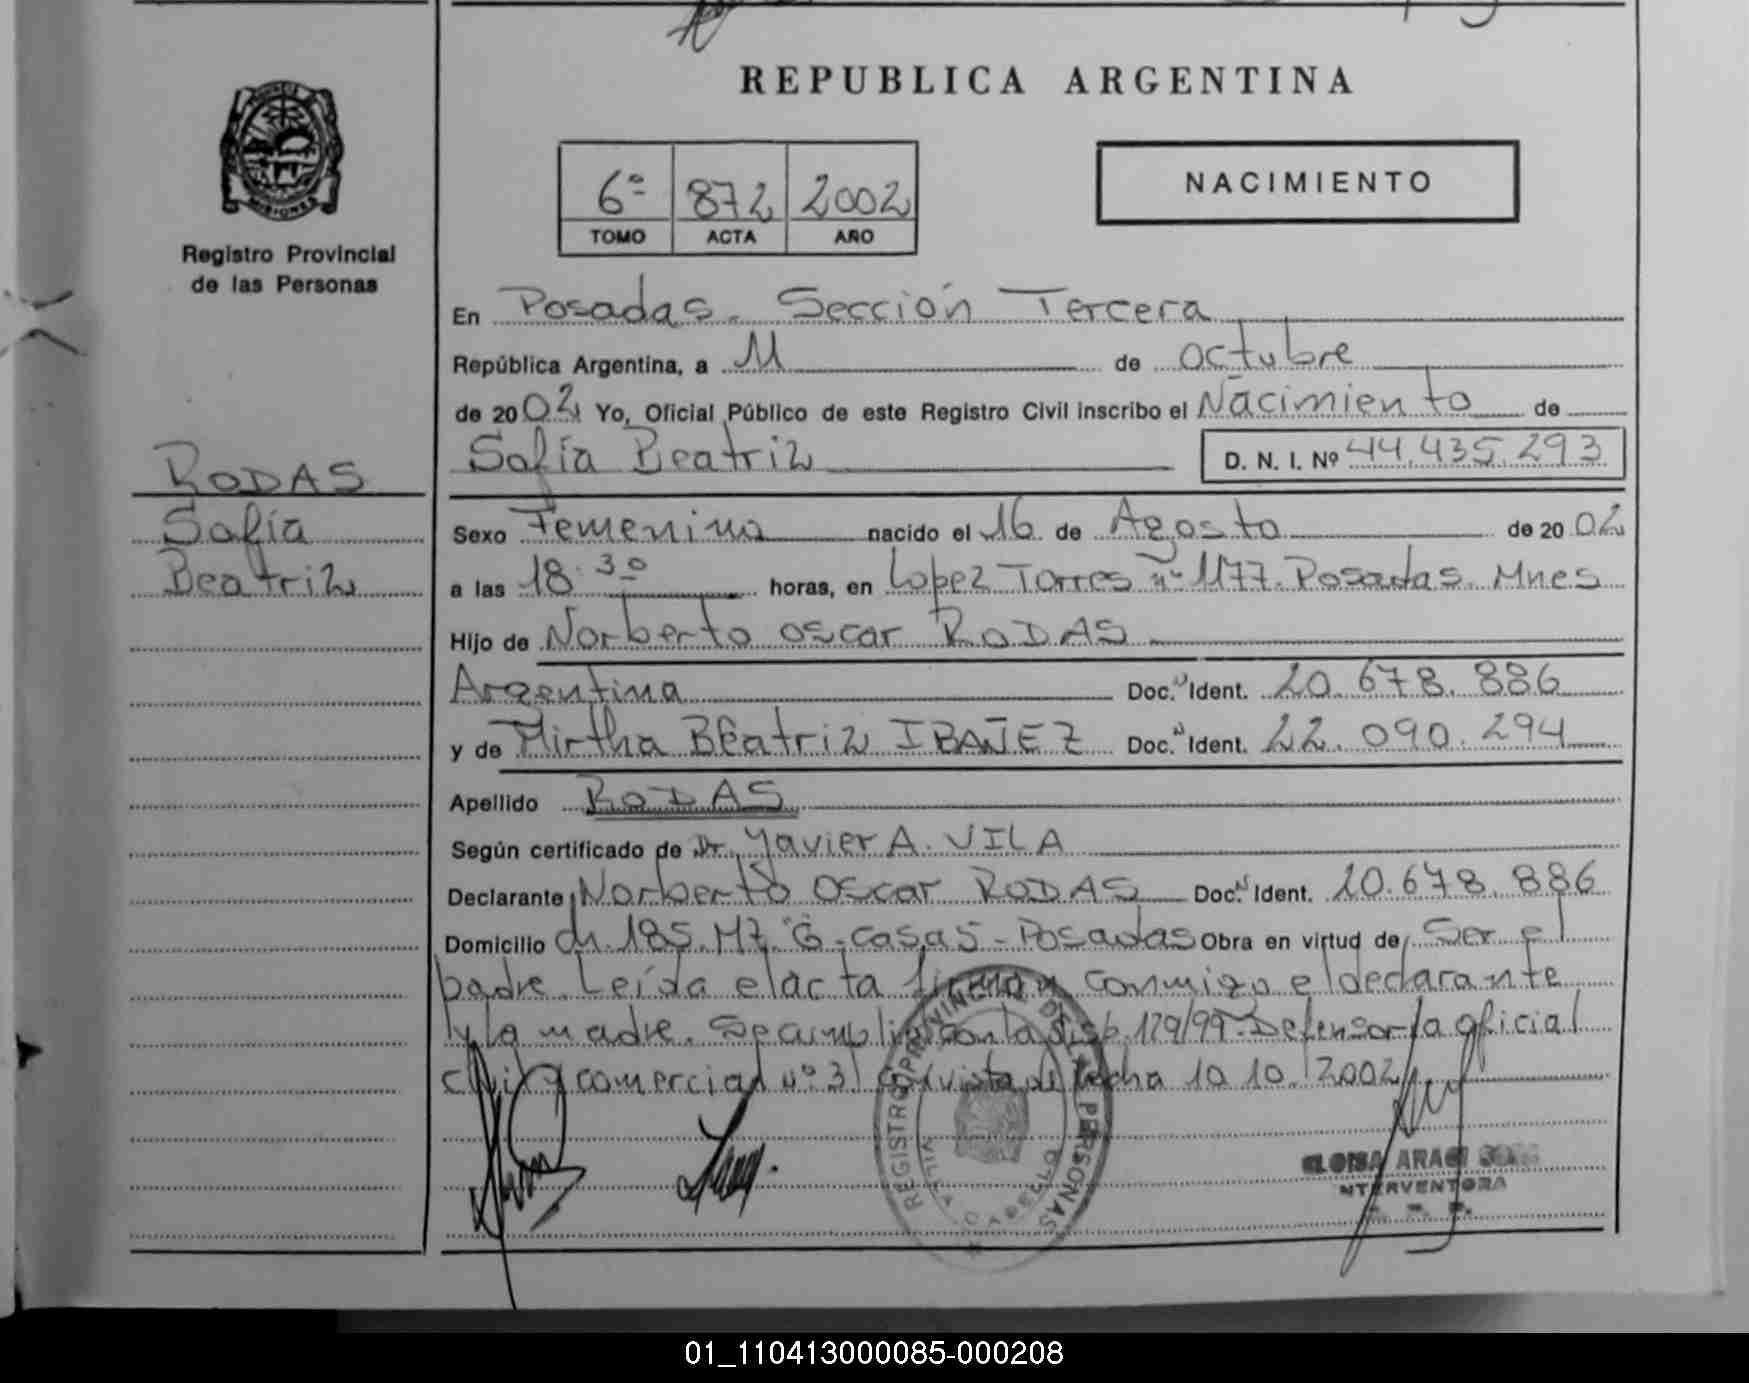 REPUBLICA ARGENTINA
MISIONES
Registro Provincial
de las Personas
6º 872 2002
TOMO ACTA AÑO
NACIMIENTO
En Posadas. Sección Tercera
República Argentina, a 11 de octubre
de 2002 Yo, Oficial Público de este Registro Civil inscribo el Nacimiento de
Sofía Beatriz D. N. I. Nº 44.435.293
RODAS
Sofía
Beatriz
Sexo Femenino nacido el 16 de Agosto de 2002
a las 18.30 horas, en Lopez Torres nº 1177. Posadas. Mnes
Hijo de Norberto oscar RODAS
Argentina Doc. Ident. 20.678.886
y de Mirtha Beatriz IBAÑEZ Doc. Ident. 22.090.294
Apellido RODAS
Según certificado de Dr. Javier A. VILA
Declarante Norberto Oscar RODAS Doc. Ident. 20.678.886
Domicilio ch. 185. Mz. G - casa 5 - Posadas Obra en virtud de Ser el
padre. Leída el acta firman conmigo el declarante
y la madre. Se cumplió con la disp. 129/99. Defensoría oficial
civil y comercial nº 3 con vista de fecha 10.10.2002
REGISTRO PROVINCIAL DE LAS PERSONAS
VILLA CABELLO
INTERVENTORA
01_110413000085-000208